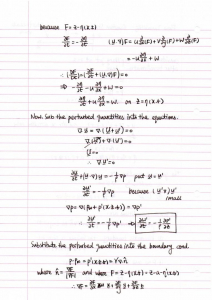 because F = z-η(x,t)
∂F/∂t = -∂η/∂t (u·∇)F = u ∂/∂x(F) + v ∂/∂y(F) + w ∂/∂z(F)
= -u ∂η/∂x + w
∴ ∂F/∂t + (u·∇)F = 0
⇒ -∂η/∂t - u ∂η/∂x + w = 0
∂η/∂t + u ∂η/∂x = w on z = η(x,t)
Now, Sub the perturbed quantities into the equations.
∇·u = ∇·(U + u') = 0
∇·(U) + ∇·(u') = 0
U = 0
∴ ∇·u' = 0
∂u/∂t + (u·∇)u = -1/ρ ∇p put u = u'
∂u'/∂t = -1/ρ ∇p because (u'·∇)u' small
∇p = ∇(p₀ + p'(x,z,t)) = ∇p'
∴ ∂u'/∂t = -1/ρ ∇p' ⇒ ∂u'/∂t = -1/ρ ∂p'/∂x
Substitute the perturbed quantities into the boundary cond.
= γ∇·n̂
where n̂ = ∇F/|∇F| and where F = z-η(x,t)